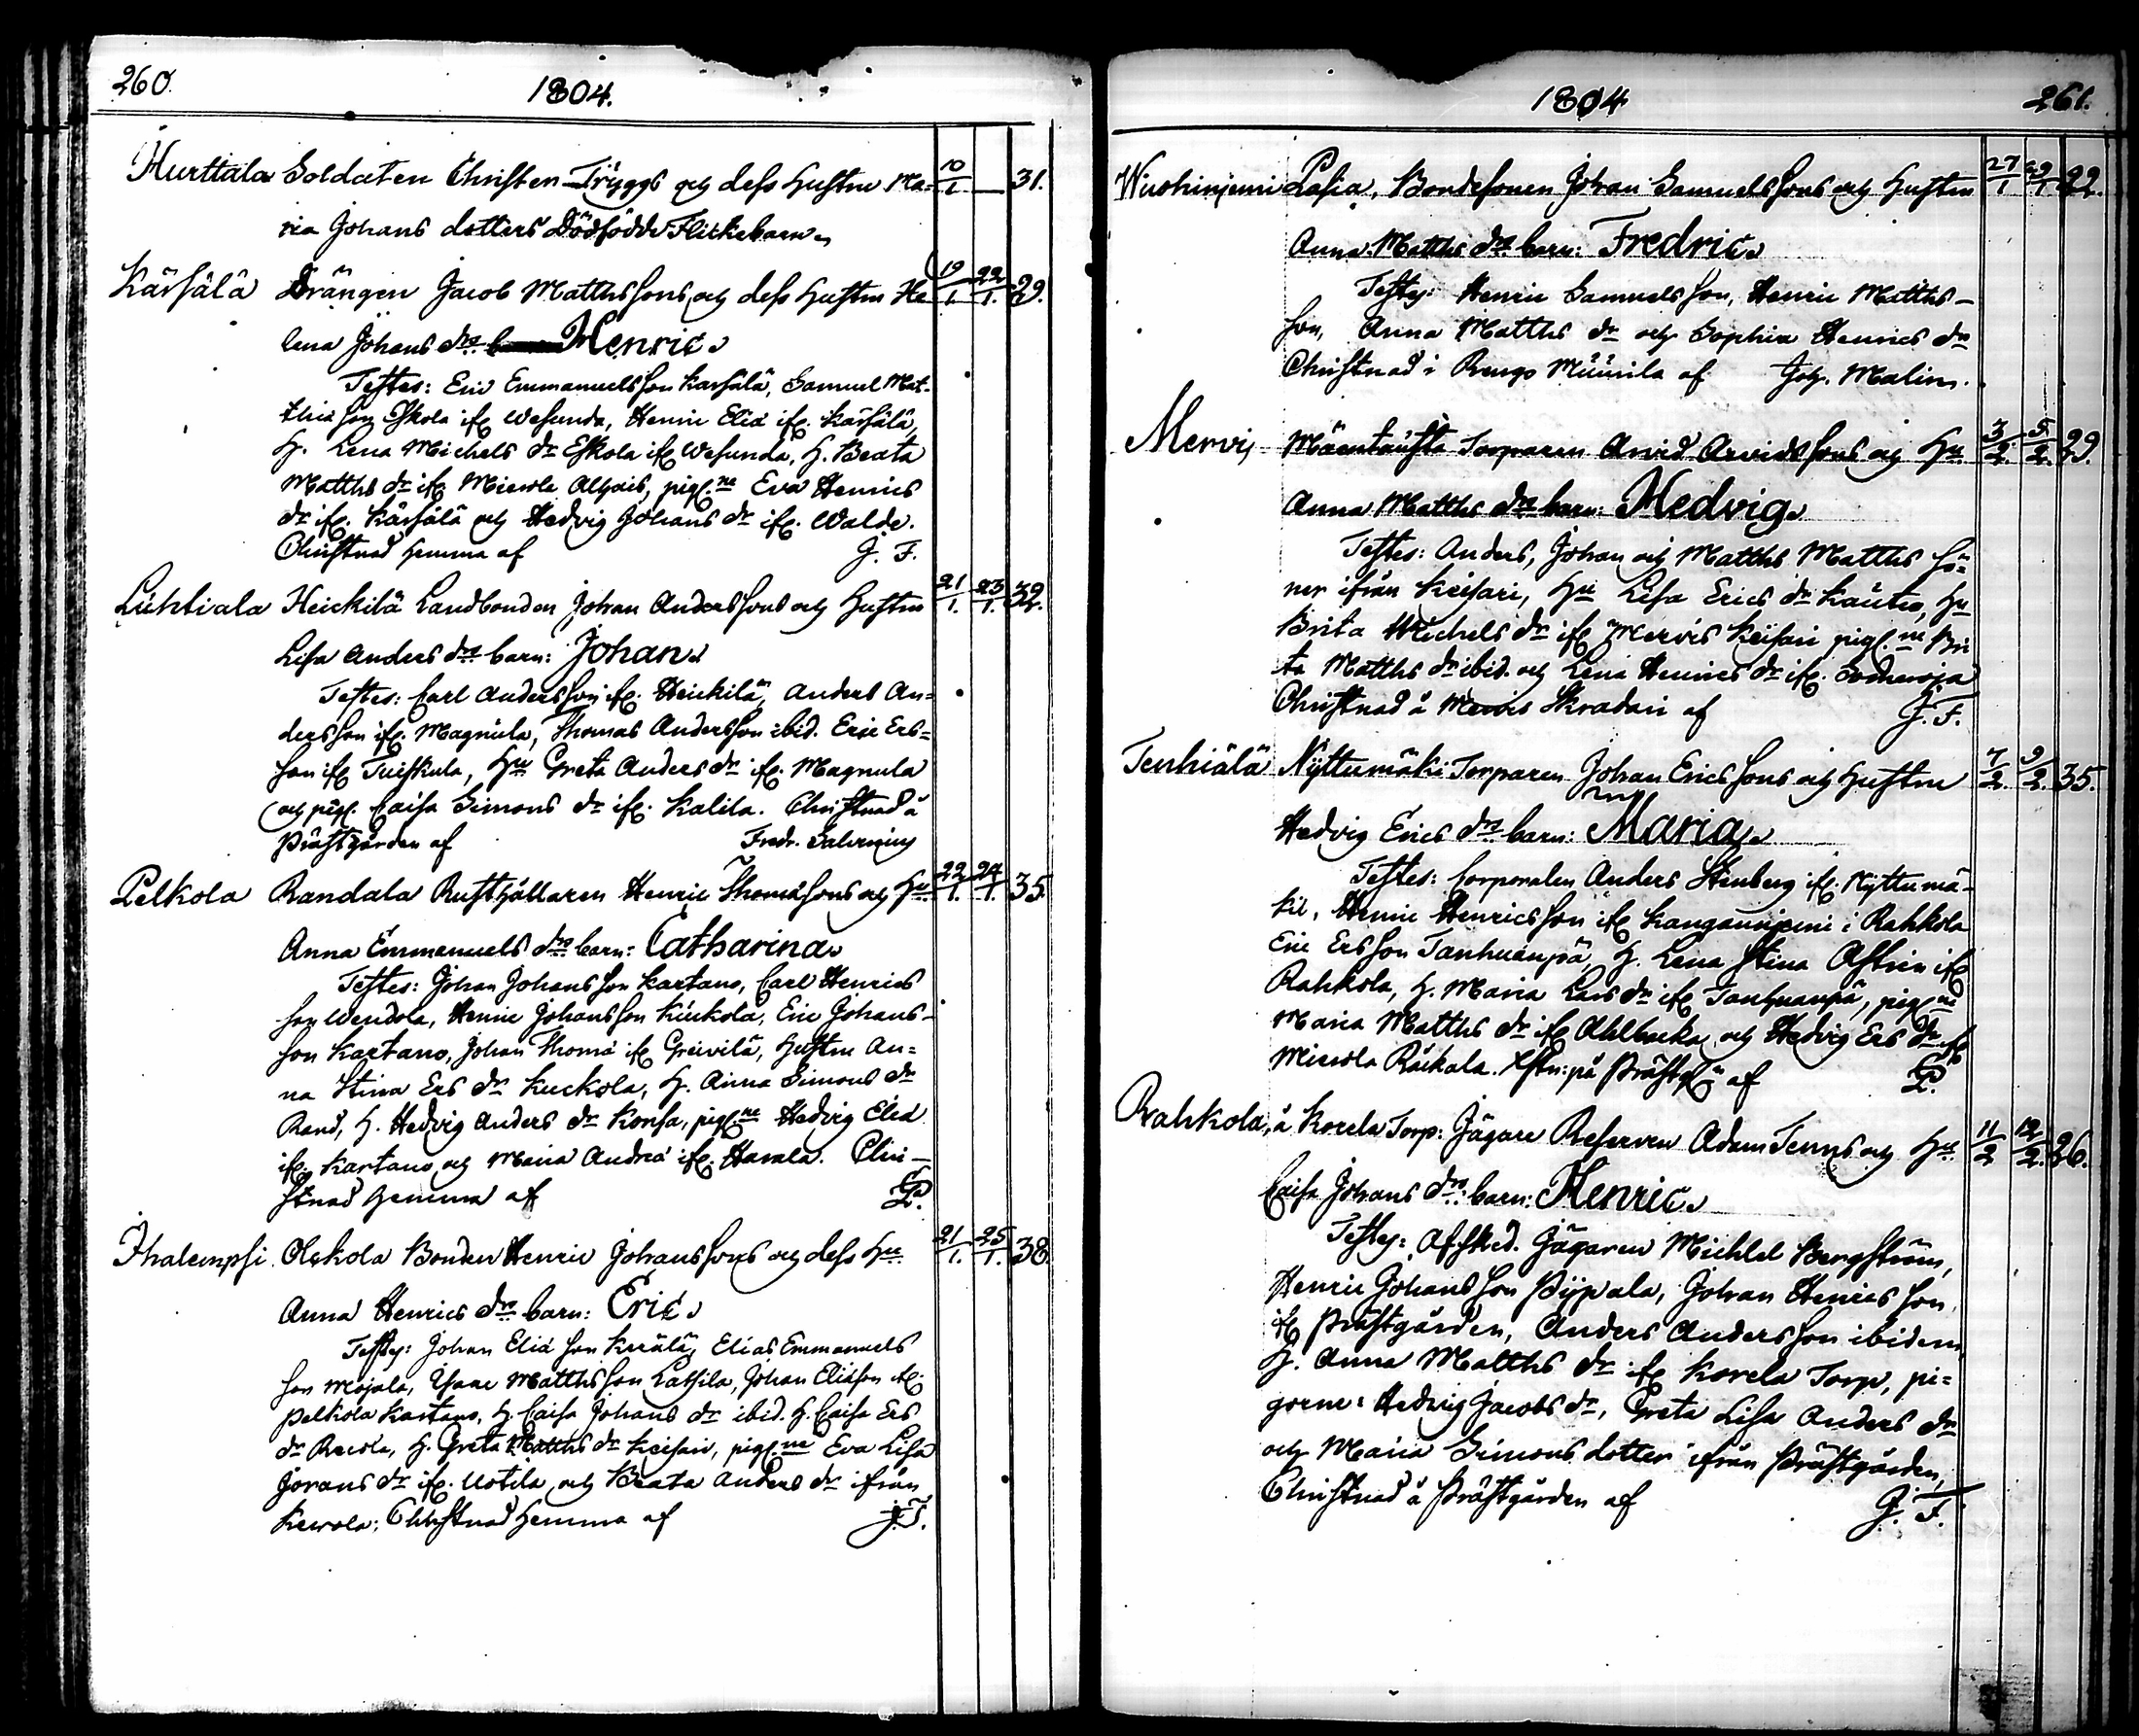 260.
1804.
Hurttala Soldaten Christen Tryggs och dess Hustru Ma= 10/1 — 31.
ria Johans dotters Dödfödde Flickebarn
Kärsälä Drängen Jacob Matthssons och dess Hustru He 19/1. 22/1. 29.
lena Johans drs Henric
Testes: Eric Emmanuelsson Kärsälä, Samuel Mat-
thiæ son Eskola ifr Wesunda, Henric Eliæ ifr. Kärsälä,
H. Lena Michels dr Eskola ifr Wesunda, H. Beata
Matths dr ifr Mierola Alhais, pig.ne Eva Henrics
dr ifr. Kärsälä och Hedvig Johans dr ifr. Walde.
Christnad hemma af J. F.
Luhtiala Heickilä Landbonden Johan Anderssons och Hustru 21/1. 23/1. 32.
Lisa Anders drs barn: Johan
Testes: Carl Andersson ifr. Heickilä, Anders An=
dersson ifr. Magnula, Thomas Andersson ibid. Eric Ers=
son ifr Tuiskula, Hu Greta Anders dr ifr. Magnula
och pig. Caisa Simons dr ifr. Kalila. Christnad å
Prästgården af Fredr. Salvenius
Pelkola Randala Rusthållaren Henric Thomæsons och Hu. 22/1. 24/1. 35
Anna Emmanuels drs barn: Catharina
Testes: Johan Johansson Kartano, Carl Henrics
son Wendola, Henric Johansson Kuckola, Eric Johans-
son Kartano, Johan Thomæ ifr Greivilä, Hustru An=
na Stina Ers dr Kuckola, H. Anna Simons dr
Rand, H. Hedvig Anders dr Konsa, pig.ne Hedvig Eliæ
ifr. Kartano och Maria Andreæ ifr. Havala. Chri-
stnad hemma af
Ihalempsi Olckola Bonden Henric Johanssons och dess Hu 21/1. 25/1. 38.
Anna Henrics drs barn: Eric
Testes: Johan Eliæ son Knälä, Elias Emmanuels
son Mojala, Isaac Matthsson Latsila, Johan Eliæson ifr.
Pelkola Kartano, H. Caisa Johans dr ibid. H. Caisa Ers
dr Recola, H. Greta Matths dr Keisari, pig.ne Eva Lisa
Jorans dr ifr. Uotila och Beata Anders dr ifrån
Kerola: Christnad hemma af J. F.
1804
261.
Wuohiniemi Pasia, Bondesonen Johan Samuelssons och Hustru 27/1 29/1 22.
Anna Matths drs barn: Fredric
Testes: Henric Samuelsson, Henric Matths-
son, Anna Matths dr och Sophia Henrics dr
Christnad i Rengo af Joh. Malin.
Mervi, Mäentausta Torparen Arvid Arvidssons och Hu 3/2. 5/2. 29.
Anna Matths drs barn: Hedvig
Testes: Anders, Johan och Matths Matths sö=
ner ifrån Keisari, Hu Lisa Erics dr Kauto, Hu
Brita Michels dr ifr Mervis Keisari pig.ne Bri
ta Matths dr ibid. och Lena Henrics dr ifr.
Christnad å Mervis Skratari af J. F.
Tenhiälä Nyttumäki Torparen Johan Erics sons och Hustru 7/2. 9/2. 35.
Hedvig Erics drs barn: Maria
Testes: Corporalen Anders Stenberg ifr. Nyttumä-
ki, Henric Henricsson ifr Kanganniemi i Rahkola
Eric Ersson Tanhuanpä, H. Lena Stina Aströn ifr
Rahkola, H. Maria Lars dr ifr Tanhuanpä, pig.ne
Maria Matths dr ifr Ahlbacka och Hedvig Ers dr ifr
Mierola Räikala. Xstn: på Prästg. af
Rahkola, å Korela Torp: Jägare Reserven Adam Tenns och Hu 11/2 12/2. 26.
Caisa Johans drs: barn: Henric
Testes: Afsked. Jägaren Michel Bergström,
Henric Johansson Piipala, Johan Henrics son
ifr Prästgården, Anders Andersson ibidem
H. Anna Matths dr ifr Korela Torp, pi=
gorne: Hedvig Jacobs dr, Greta Lisa Anders dr
och Maria Simons dotter ifrån Prästgården,
Christnad å Prästgården af J. F.